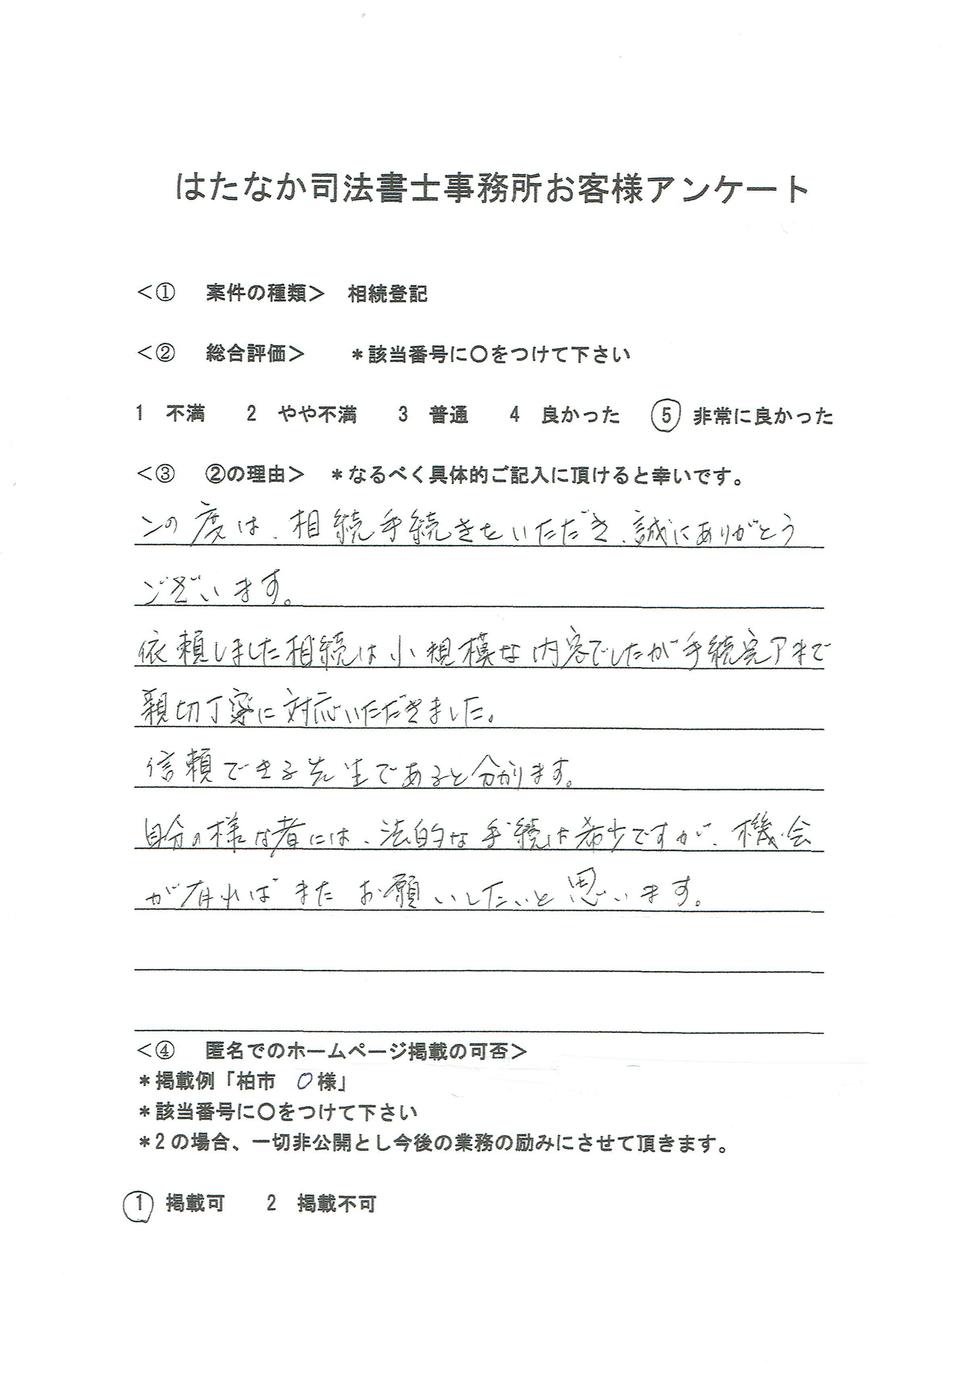 はたなか司法書士事務所お客様アンケート
＜①　案件の種類＞　相続登記
＜②　総合評価＞　＊該当番号に〇をつけて下さい
1　不満　2　やや不満　3　普通　4　良かった　5　非常に良かった
＜③　②の理由＞　＊なるべく具体的ご記入に頂けると幸いです。
この度は、相続手続きをいただき、誠にありがとう
ございます。
依頼しました相続は小規模な内容でしたが手続完了まで
親切丁寧に対応いただきました。
信頼できる先生であると分かります。
自分の様な者には、法的な手続は希少ですが、機会
が有ればまたお願いしたいと思います。
＜④　匿名でのホームページ掲載の可否＞
＊掲載例「柏市　〇様」
＊該当番号に〇をつけて下さい
＊2の場合、一切非公開とし今後の業務の励みにさせて頂きます。
1　掲載可　2　掲載不可